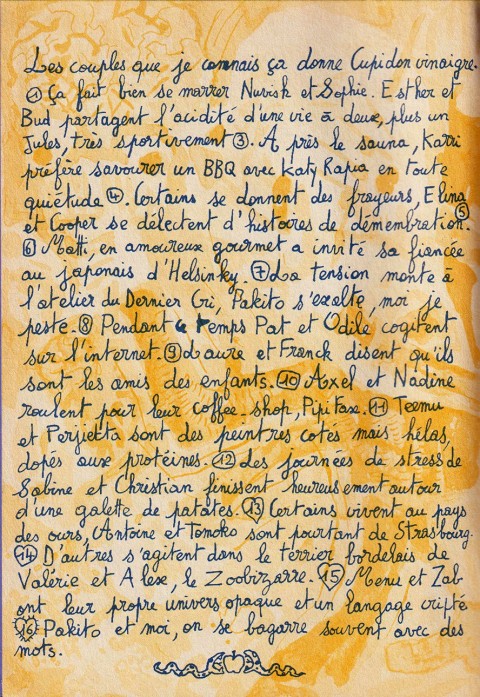 Les couples que je connais ça donne Cupidon vinaigre.
① Ça fait bien se marrer Nuvisk et Sophie. Esther et
Bud partagent l'acidité d'une vie à deux, plus un
Jules, très sportivement ③. Après le sauna, Katri
préfère savourer un BBQ avec Katy Rapia en toute
quiétude ④. Certains se donnent des frayeurs, Elina
et Cooper se délectent d'histoires de démembration. ⑤
⑥ Matti, en amoureux gourmet a invité sa fiancée
au japonais d'Helsinky. ⑦ La tension monte à
l'atelier du Dernier Cri, Pakito s'exalte, moi je
peste. ⑧ Pendant ce temps Pat et Odile cogitent
sur l'internet. ⑨ Laure et Franck disent qu'ils
sont les amis des enfants. ⑩ Axel et Nadine
roulent pour leur coffee-shop, Pipifax. ⑪ Teemu
et Perjietta sont des peintres cotés mais hélas,
dopés aux protéines. ⑫ Les journées de stress de
Sabine et Christian finissent heureusement autour
d'une galette de patates. ⑬ Certains vivent au pays
des ours, Antoine et Tomoko sont pourtant de Strasbourg.
⑭ D'autres s'agitent dans le terrier bordelais de
Valérie et Alexe, le Zoobizarre. ⑮ Menu et Zab
ont leur propre univers opaque et un langage cripté
⑯ Pakito et moi, on se bagarre souvent avec des
mots.